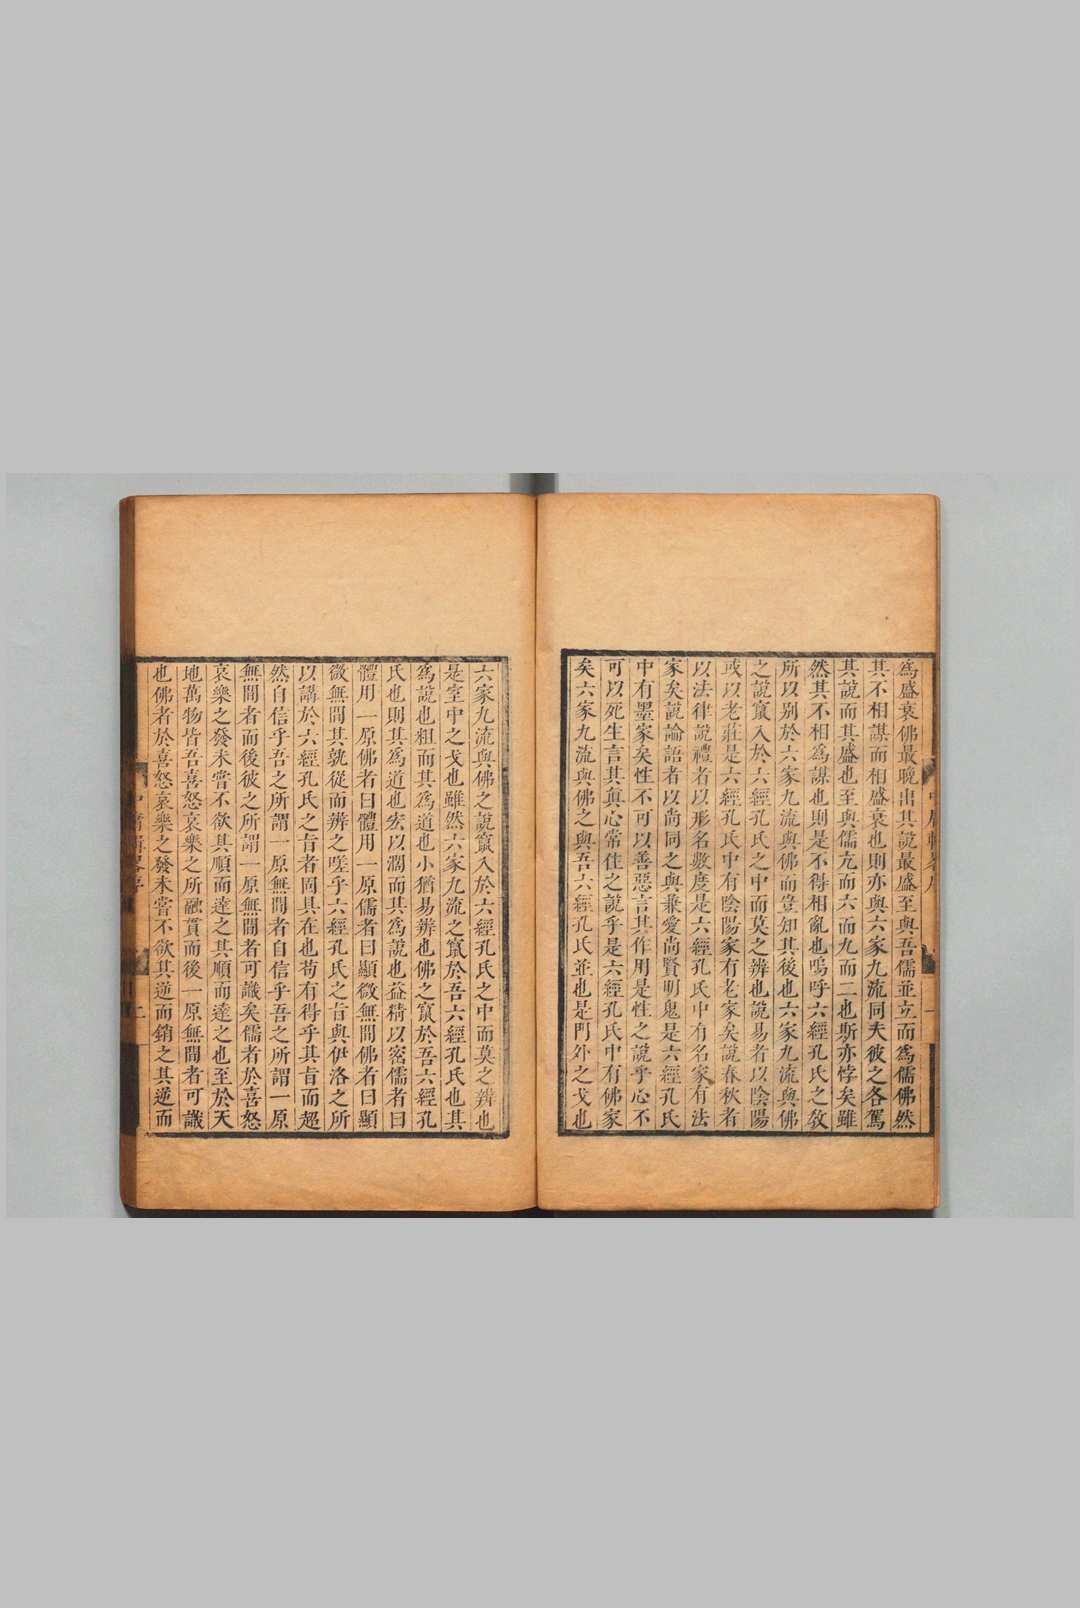 為盛衰佛最晚出其說最盛至與吾儒並立而為儒佛然
其不相謀而相盛衰也則亦與六家九流同夫彼之各駕
其說而其盛也至與儒亢而六而九而二也斯亦悖矣雖
然其不相為謀也則是不得相亂也嗚呼六經孔氏之教
所以別於六家九流與佛而豈知其後也六家九流與佛
之說竄入於六經孔氏之中而莫之辨也說易者以陰陽
或以老莊是六經孔氏中有陰陽家有老家矣說春秋者
以法律說禮者以形名數度是六經孔氏中有名家有法
家矣說論語者以尚同之與兼愛尚賢明鬼是六經孔氏
中有墨家矣性不可以善惡言其作用是性之說乎心不
可以死生言其真心常住之說乎是六經孔氏中有佛家
矣六家九流與佛之與吾六經孔氏並也是門外之戈也
六家九流與佛之說竄入於六經孔氏之中而莫之辨也
是室中之戈也雖然六家九流之竄於吾六經孔氏也其
為說也粗而其為道也小猶易辨也佛之竄於吾六經孔
氏也則其為道也宏以濶而其為說也益精以密儒者曰
體用一原佛者曰體用一原儒者曰顯微無間佛者曰顯
微無間其孰從而辨之嗟乎六經孔氏之旨與伊洛之所
以講於六經孔氏之旨者固具在也苟有得乎其旨而超
然自信乎吾之所謂一原無間者自信乎吾之所謂一原
無間者而後彼之所謂一原無間者可識矣儒者於喜怒
哀樂之發未嘗不欲其順而達之其順而達之也至於天
地萬物皆吾喜怒哀樂之所融貫而後一原無間者可識
也佛者於喜怒哀樂之發未嘗不欲其逆而銷之其逆而